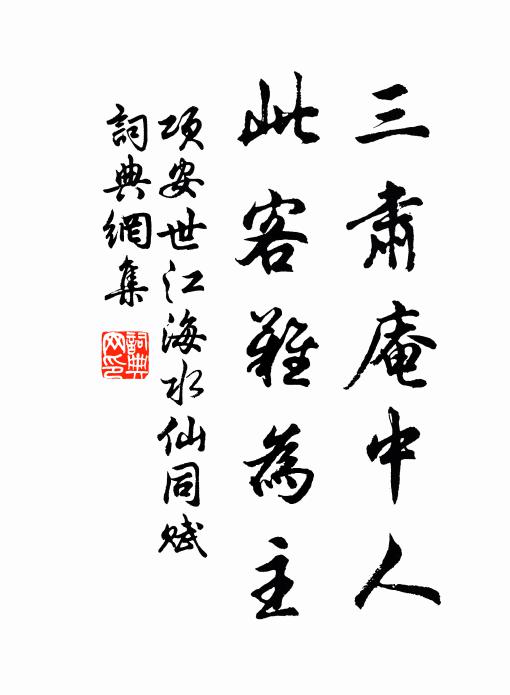 三肃庵中人
此客難為主
項安世江海水仙同賦
詞典網集
詞典
网印